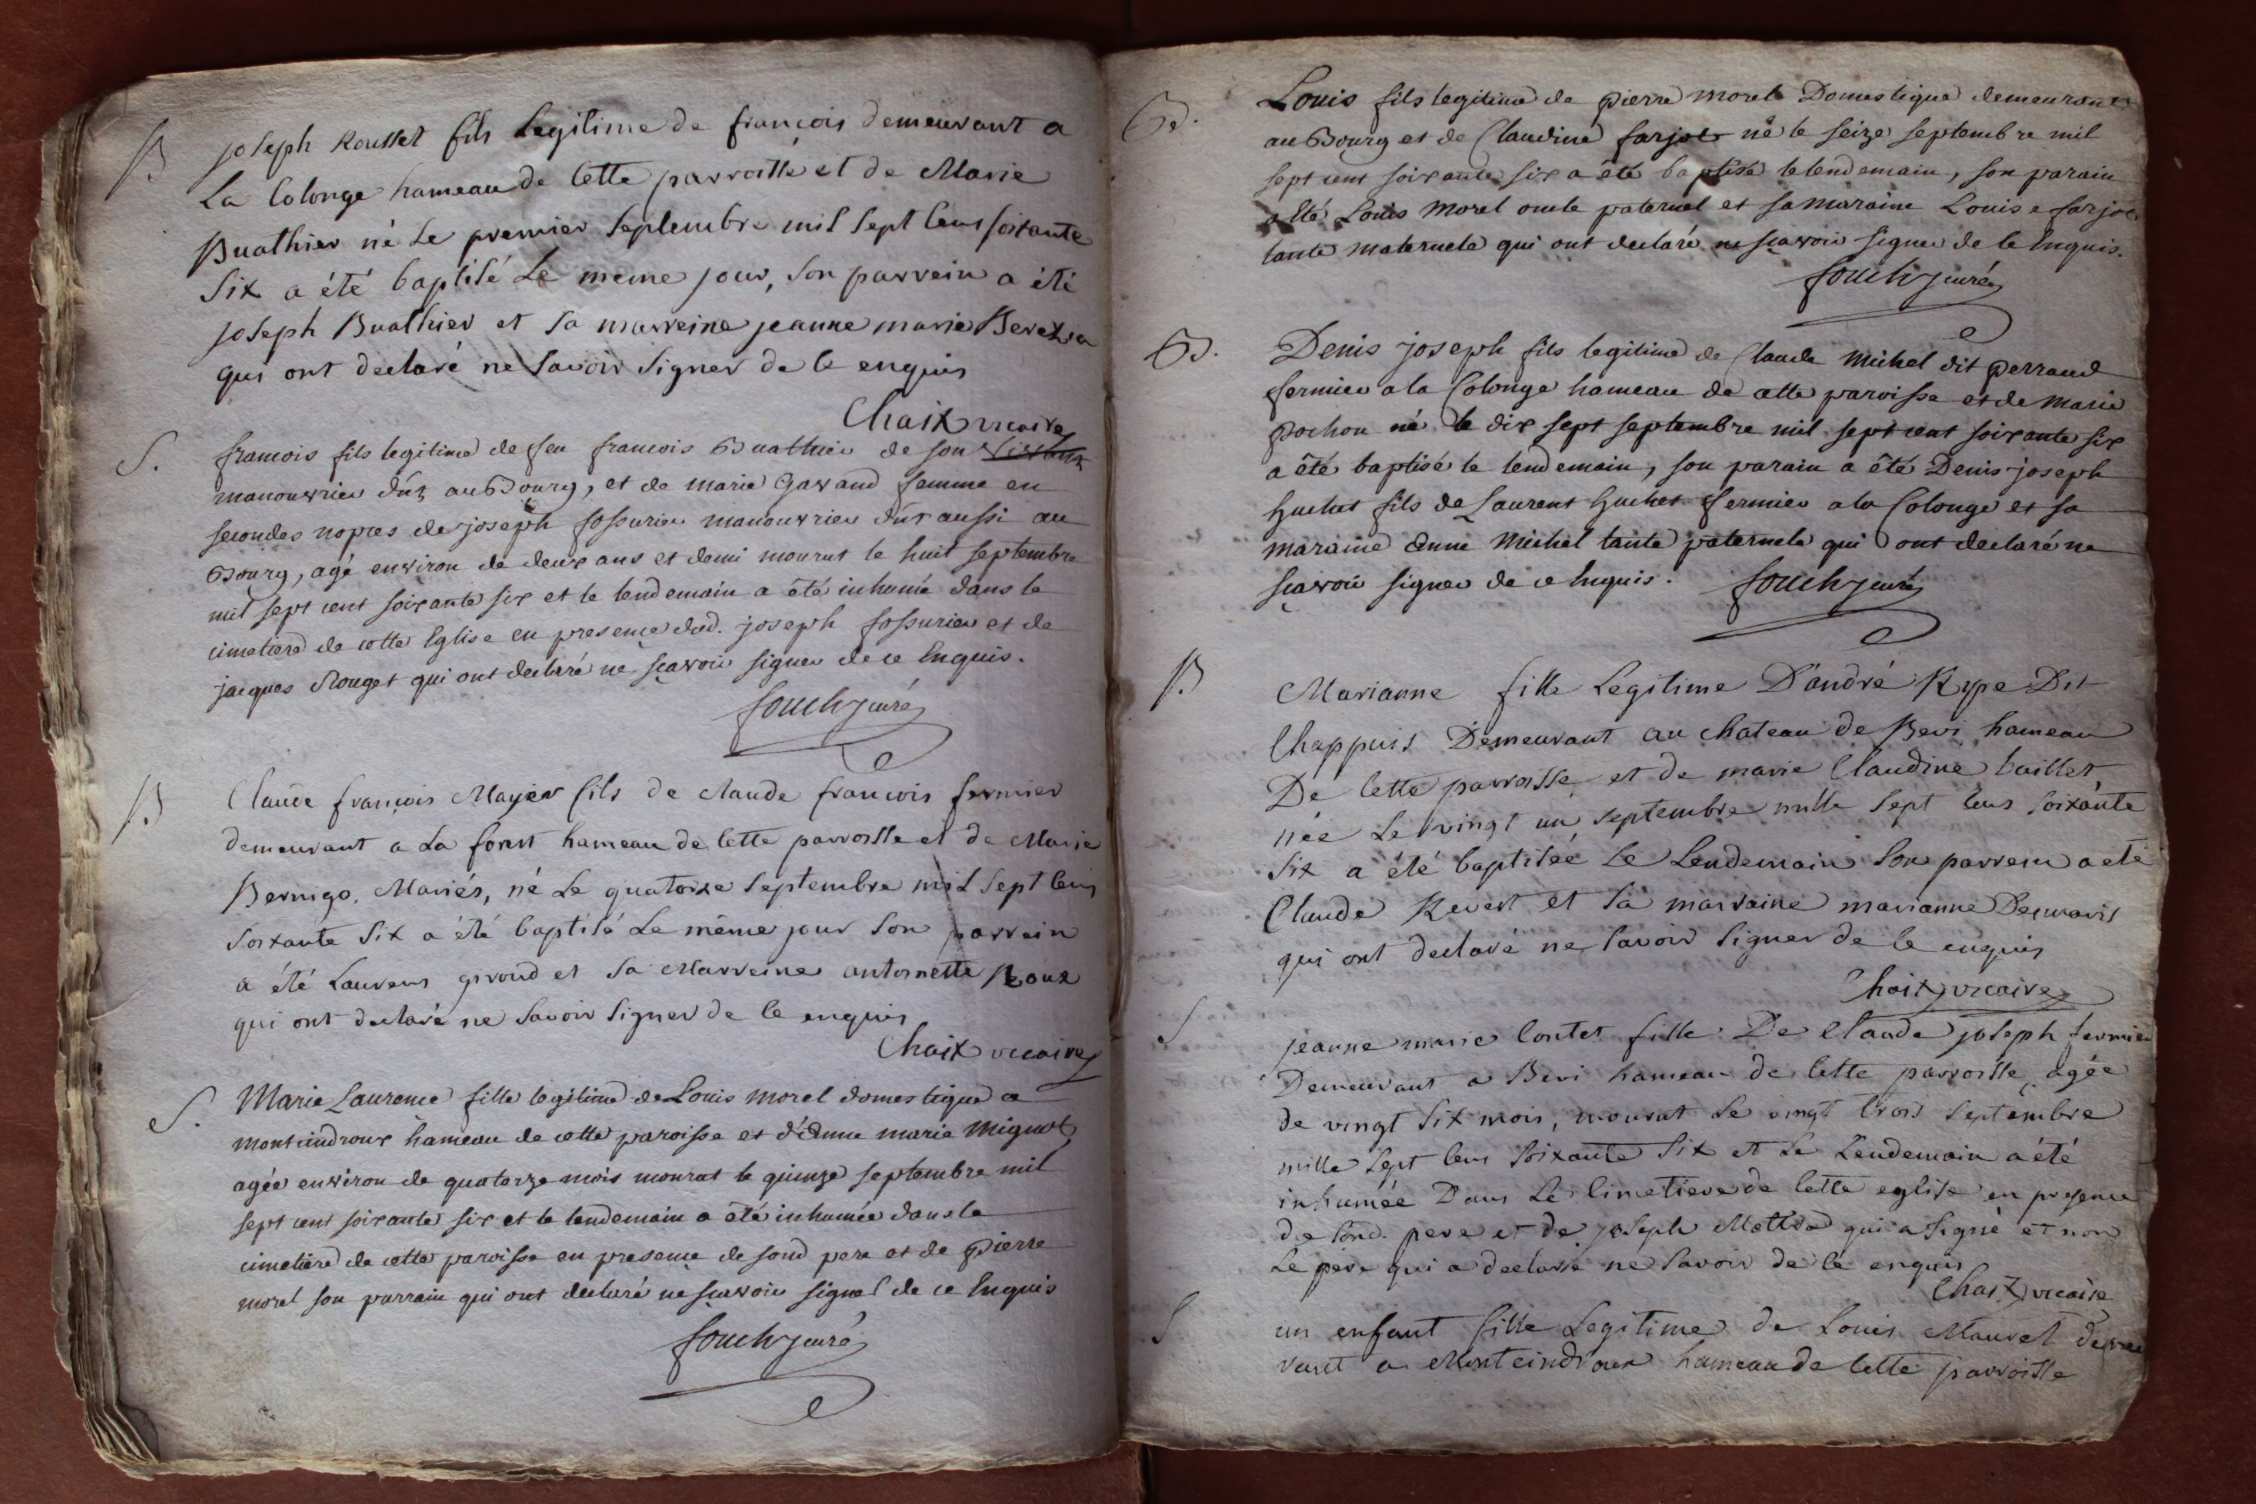 B
joseph Rousset fils Legitime de françois demeurant a
La Colonge hameau de Cette parroisse et de Marie
Buathier né Le premier Septembre mil Sept Cens soixante
Six a été baptisé Le meme jour, Son parrein a été
joseph Buathier et Sa marreine jeanne marie
qui ont declaré ne Savoir Signer de Ce enquis
Chaix vicaire
S.
francois fils legitime de feu francois Buathier de son vivant
manouvrier dud. au Bourg, et de marie Gavand femme en
secondes nopces de joseph fossurier manouvrier dud. aussi au
Bourg, agé environ de deux ans et demi mourut le huit septembre
mil sept cent soixante six et le lendemain a été inhumé dans le
cimetiere de cette Eglise en presence dud. joseph fossurier et de
jacques Rouget qui ont declaré ne sçavoir signer de ce Enquis.
fouchy curé
B
Claude françois Mayer fils de claude francois fermier
demeurant a La forest hameau de Cette parroisse et de Marie
Bernigo. Mariés, né Le quatorze Septembre mil Sept Cens
Soixante Six a été baptisé Le même jour Son parrein
a été Laurens giroud et Sa Marreine antoinette Roux
qui ont declaré ne Savoir Signer de Ce enquis
Chaix vicaire
S.
Marie Laurence fille legitime de Louis morel domestique a
montcindroux hameau de cette paroisse et d'Anne marie Miguet
agée environ de quatorze mois mourut le quinze septembre mil
sept cent soixante six et le lendemain a été inhumée dans le
cimetiere de cette paroisse en presence de sond pere et de Pierre
morel son parrain qui ont declaré ne sçavoir signer de ce Enquis
fouchy curé
B.
Louis fils legitime de Pierre morel Domestique demeurant
au Bourg et de Claudine farjot né le seize septembre mil
sept cent soixante six a été baptisé le lendemain, son parain
a été Louis Morel oncle paternel et sa maraine Louise farjot
tante maternele qui ont declaré ne sçavoir signer de ce Enquis.
fouchy curé
B.
Denis joseph fils legitime de Claude Michel dit perraud
fermier a la Colonge hameau de cette paroisse et de Marie
Pochon né le dix sept septembre mil sept cent soixante six
a été baptisé le lendemain, son parain a été Denis joseph
Guchet fils de Laurent Guchet fermier a la Colonge et sa
maraine Anne Michel tante paternele qui ont declaré ne
sçavoir signer de ce Enquis. fouchy curé
B
Marianne fille Légitime D'andré Rype Dit
Chappuis Demeurant au chateau de Bevi hameau
De Cette parroisse et de marie Claudine baillet
née Le vingt un septembre mille Sept Cens Soixante
Six a été baptisée Le Lendemain Son parrein a été
Claude Revert et Sa marraine marianne Desmaris
qui ont declaré ne Savoir Signer de Ce enquis
Chaix vicaire
S
jeanne marie Contet fille De Claude joseph fermier
Demeurant a Bevi hameau de Cette parroisse, agée
de vingt Six mois, mourut Le vingt trois Septembre
mille Sept Cens Soixante Six et Le Lendemain a été
inhumée Dans Le Cimetiere de Cette eglise en presence
de Sond. pere et de joseph qui a Signé et non
Le pere qui a declaré ne Savoir de Ce enquis
Chaix vicaire
S
un enfant fille Legitime de Louis Maurel demeu
rant a Montcindroux hameau de Cette parroisse